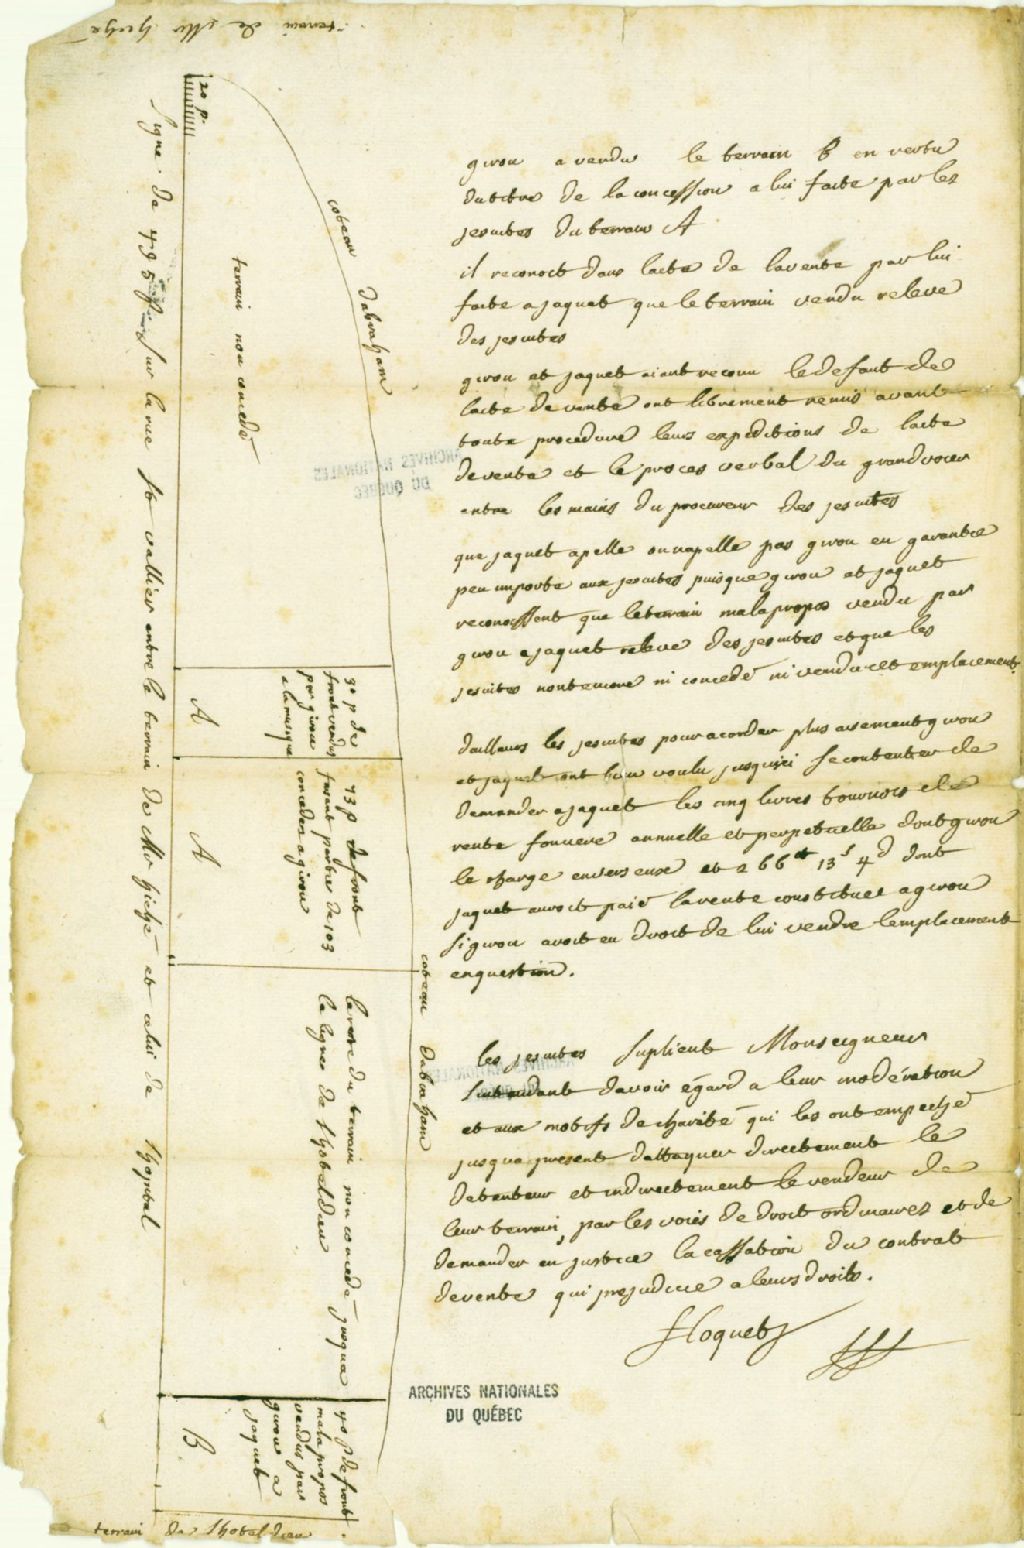 terrain de Mr hiché
20 p.
ligne de 495 sur la rue st vallier entre le terrain de Mr hiché et celui de lhopital
coteau dabraham
terrain non concedé
A
30 p de
front vendus
par girou
a la musique
A
73 p de front
faisant partie de 103
concedes a girou
coteau dabraham
le reste du terrain non concedé jusqua
la ligne de lhoteldieu
B
40 p de front
mal a propos
vendus par
girou a
jaquet
terrain de lhoteldieu
girou a vendu le terrain b en vertu
du titre de la concession a lui faite par les
jesuites du terrain A
il reconoit dans lacte de la vente par lui
faite a jaquet que le terrain vendu releve
des jesuites
girou et jaquet aiant reconu le defaut de
lacte de vente ont librement remis avant
toute procedure leurs expeditions de lacte
de vente et le proces verbal du grand voier
entre les mains du procureur des jesuites
que jaquet apelle ou napelle pas girou en garantie
peu importe aux jesuites puisque girou et jaquet
reconoissent que le terrain mal a propos vendu par
girou a jaquet releve des jesuites et que les
jesuites nont encore ni concedé ni vendu cet emplacement
dailleurs les jesuites pour acorder plus aisement girou
et jaquet ont bien voulu jusquici se contenter de
demander a jaquet les cinq livres tournois de
rente fonciere annuelle et perpetuelle dont girou
le charge envers eux et 266tt 13s 4d dont
jaquet auroit paié la rente constituée a girou
si girou avoit eu droit de lui vendre lemplacement
en question.
les jesuites suplient Monseigneur
lintendant davoir égard a leur modération
et aux motifs de charité qui les ont empeché
jusqua present dattaquer directement le
detenteur et indirectement le vendeur de
leur terrain, par les voies de droit ordinaires et de
demander en justice la cassation du contrat
de vente qui prejudicie a leurs droits.
f Coquet
ARCHIVES NATIONALES
DU QUÉBEC
ARCHIVES NATIONALES
DU QUÉBEC
ARCHIVES NATIONALES
DU QUÉBEC